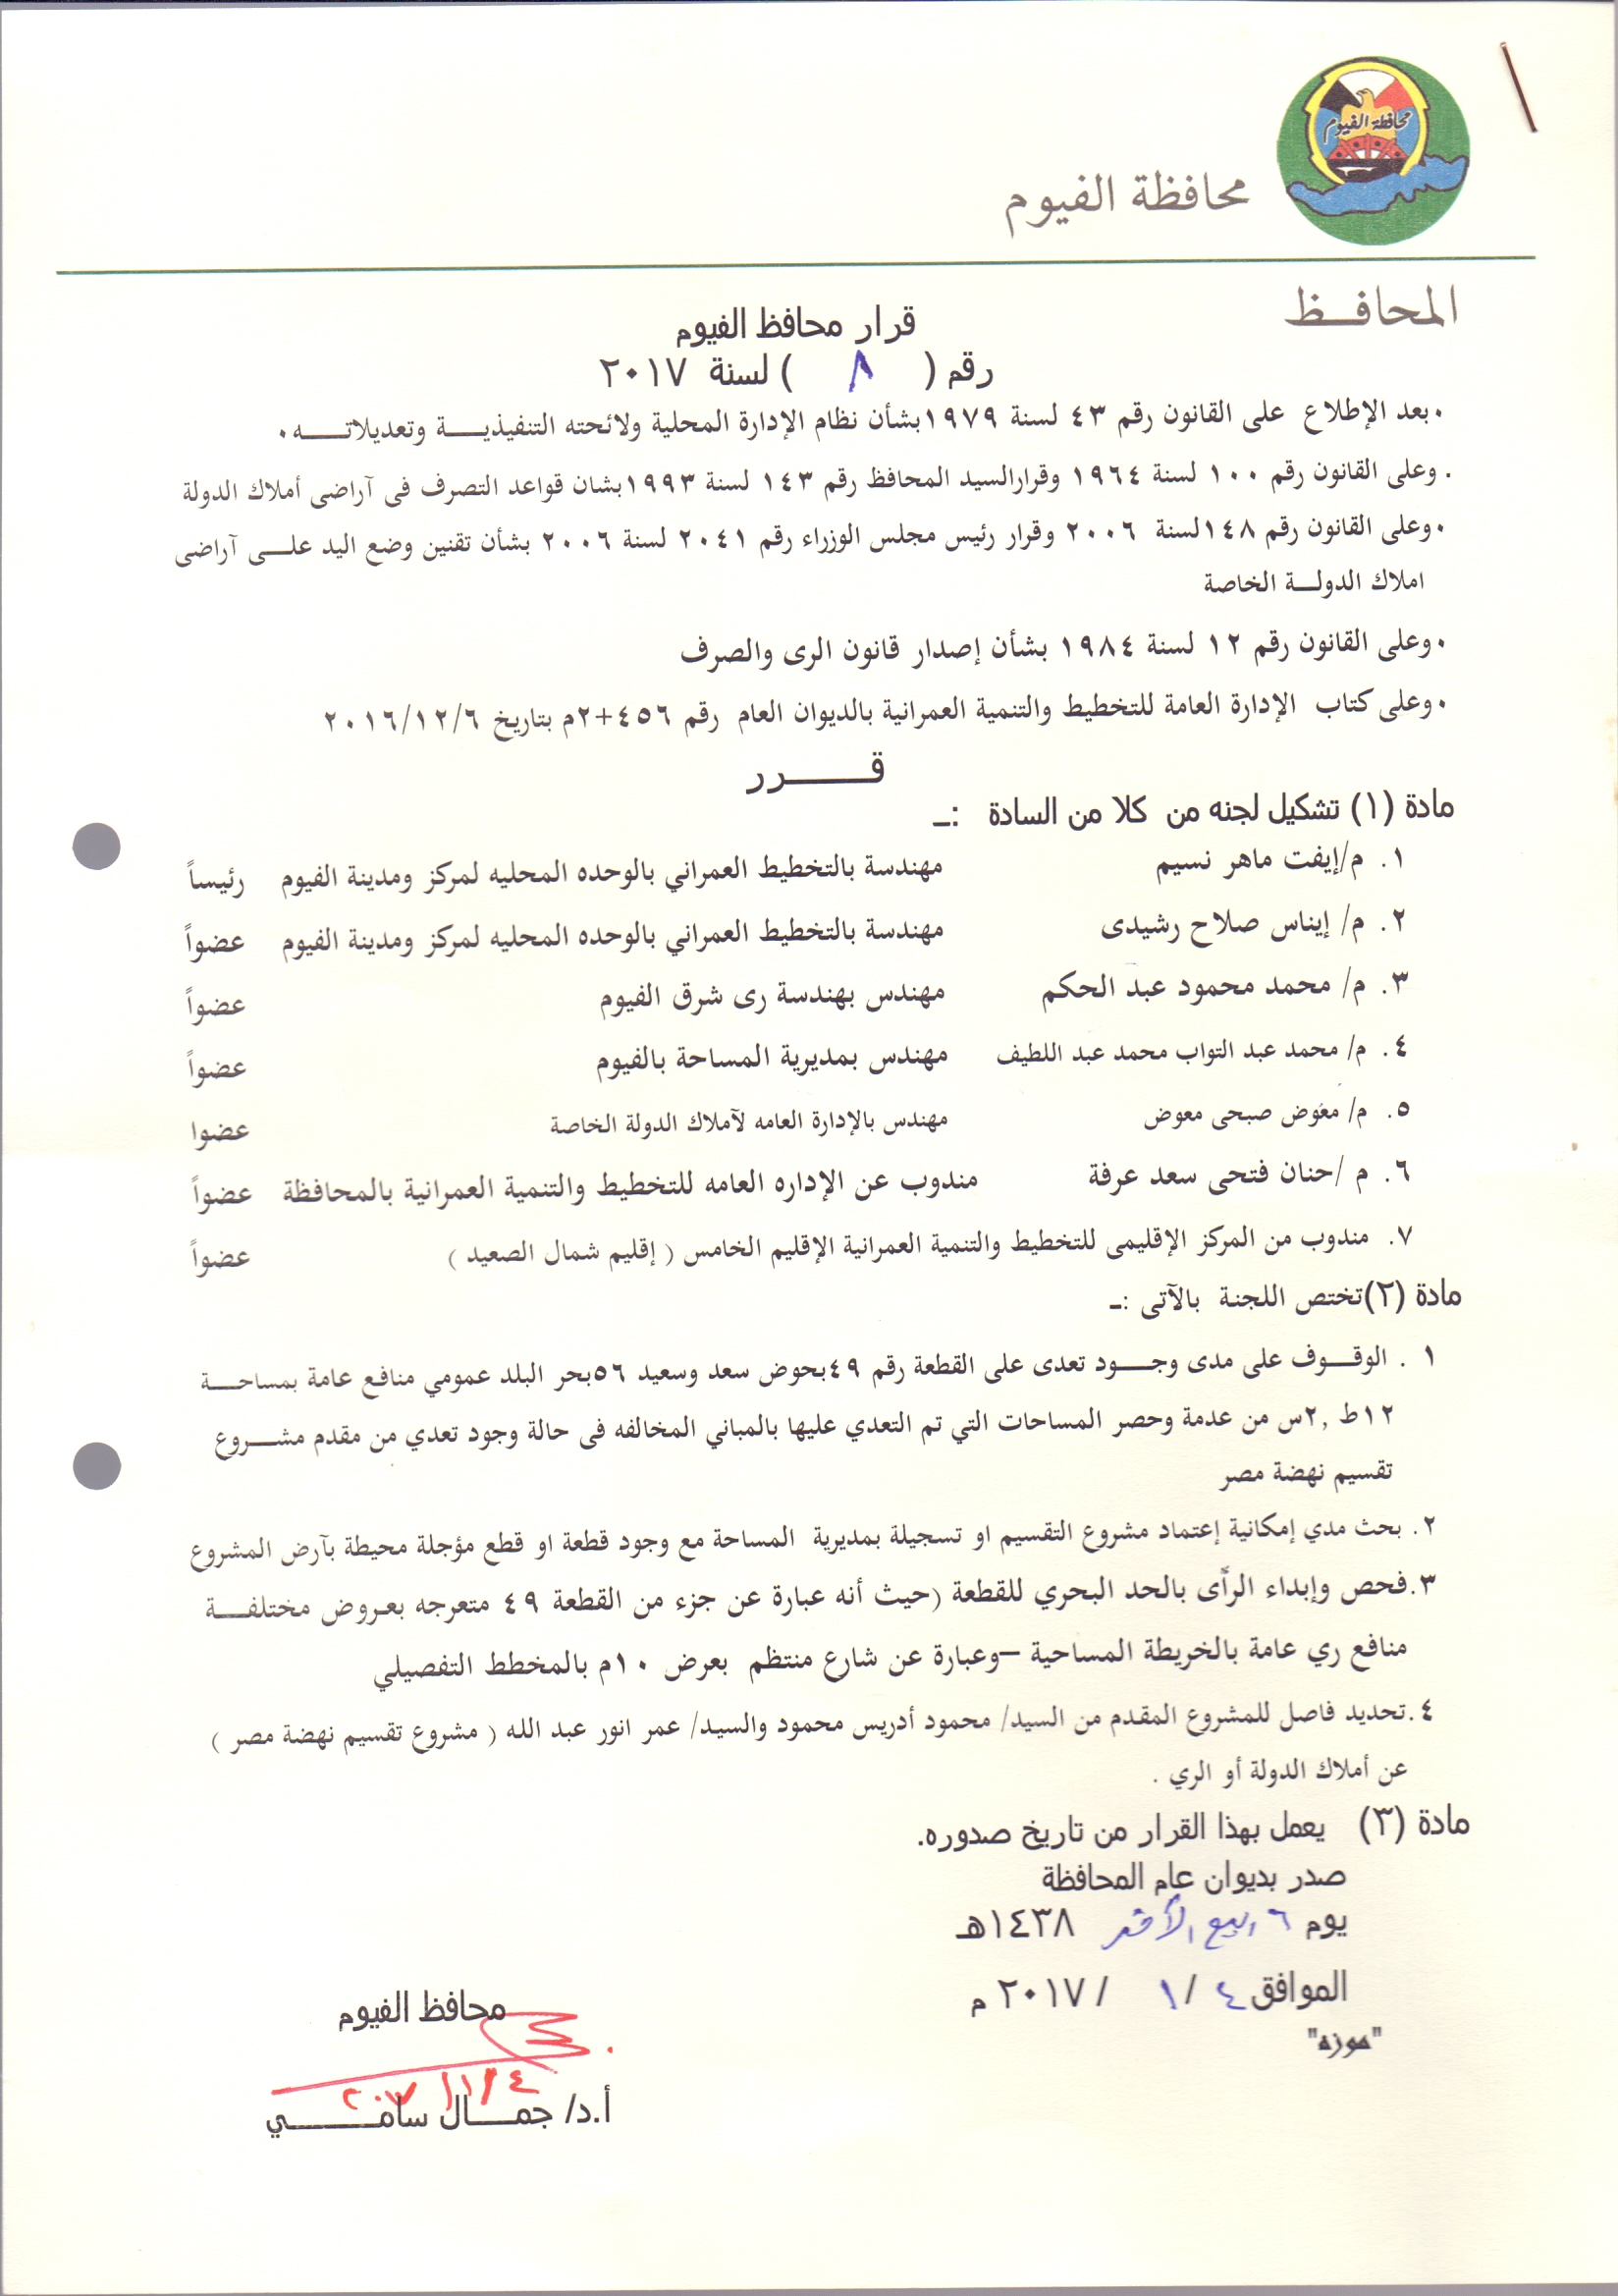 محافظة الفيوم
محافظة الفيوم
المحافـــظ
قرار محافظ الفيوم
رقم ( ٨ ) لسنة ٢٠١٧
٠بعد الإطلاع على القانون رقم ٤٣ لسنة ١٩٧٩بشأن نظام الإدارة المحلية ولائحته التنفيذيـــة وتعديلاتـــــه٠
. وعلى القانون رقم ١٠٠ لسنة ١٩٦٤ وقرارالسيد المحافظ رقم ١٤٣ لسنة ١٩٩٣بشان قواعد التصرف فى آراضى أملاك الدولة
٠وعلى القانون رقم ١٤٨لسنة ٢٠٠٦ وقرار رئيس مجلس الوزراء رقم ٢٠٤١ لسنة ٢٠٠٦ بشأن تقنين وضع اليد علـــى آراضى
املاك الدولـــة الخاصة
٠وعلى القانون رقم ١٢ لسنة ١٩٨٤ بشأن إصدار قانون الرى والصرف
٠وعلى كتاب الإدارة العامة للتخطيط والتنمية العمرانية بالديوان العام رقم ٤٥٦+٢م بتاريخ ٢٠١٦/١٢/٦
قـــــــرر
مادة (١) تشكيل لجنه من كلا من السادة :ــ
١. م/إيفت ماهر نسيم مهندسة بالتخطيط العمراني بالوحده المحليه لمركز ومدينة الفيوم رئيساً
٢. م/ إيناس صلاح رشيدى مهندسة بالتخطيط العمراني بالوحده المحليه لمركز ومدينة الفيوم عضواً
٣. م/ محمد محمود عبد الحكم مهندس بهندسة رى شرق الفيوم عضواً
٤. م/ محمد عبد التواب محمد عبد اللطيف مهندس بمديرية المساحة بالفيوم عضواً
٥. م/ معوض صبحى معوض مهندس بالإدارة العامه لآملاك الدولة الخاصة عضوا
٦. م /حنان فتحى سعد عرفة مندوب عن الإداره العامه للتخطيط والتنمية العمرانية بالمحافظة عضواً
٧. مندوب من المركز الإقليمى للتخطيط والتنمية العمرانية الإقليم الخامس ( إقليم شمال الصعيد ) عضواً
مادة (٢)تختص اللجنة بالآتى :ــ
١ . الوقـــوف على مدى وجـــود تعدى على القطعة رقم ٤٩بحوض سعد وسعيد ٥٦بحر البلد عمومي منافع عامة بمساحـــة
١٢ط ,٢س من عدمة وحصر المساحات التي تم التعدي عليها بالمباني المخالفه فى حالة وجود تعدي من مقدم مشــــروع
تقسيم نهضة مصر
٢. بحث مدي إمكانية إعتماد مشروع التقسيم او تسجيلة بمديرية المساحة مع وجود قطعة او قطع مؤجلة محيطة بآرض المشروع
٣.فحص وإبداء الرآى بالحد البحري للقطعة (حيث أنه عبارة عن جزء من القطعة ٤٩ متعرجه بعروض مختلفـــة
منافع ري عامة بالخريطة المساحية –وعبارة عن شارع منتظم بعرض ١٠م بالمخطط التفصيلي
٤.تحديد فاصل للمشروع المقدم من السيد/ محمود أدريس محمود والسيد/ عمر انور عبد الله ( مشروع تقسيم نهضة مصر )
عن أملاك الدولة أو الري .
مادة (٣) يعمل بهذا القرار من تاريخ صدوره.
صدر بديوان عام المحافظة
يوم ٦ ربيع الأخر ١٤٣٨هـ
الموافق ٤ / ١ / ٢٠١٧ م
"موزه"
محافظ الفيوم
٢٠١٧/١/٤
أ.د/ جمـــــال سامـــــــــي